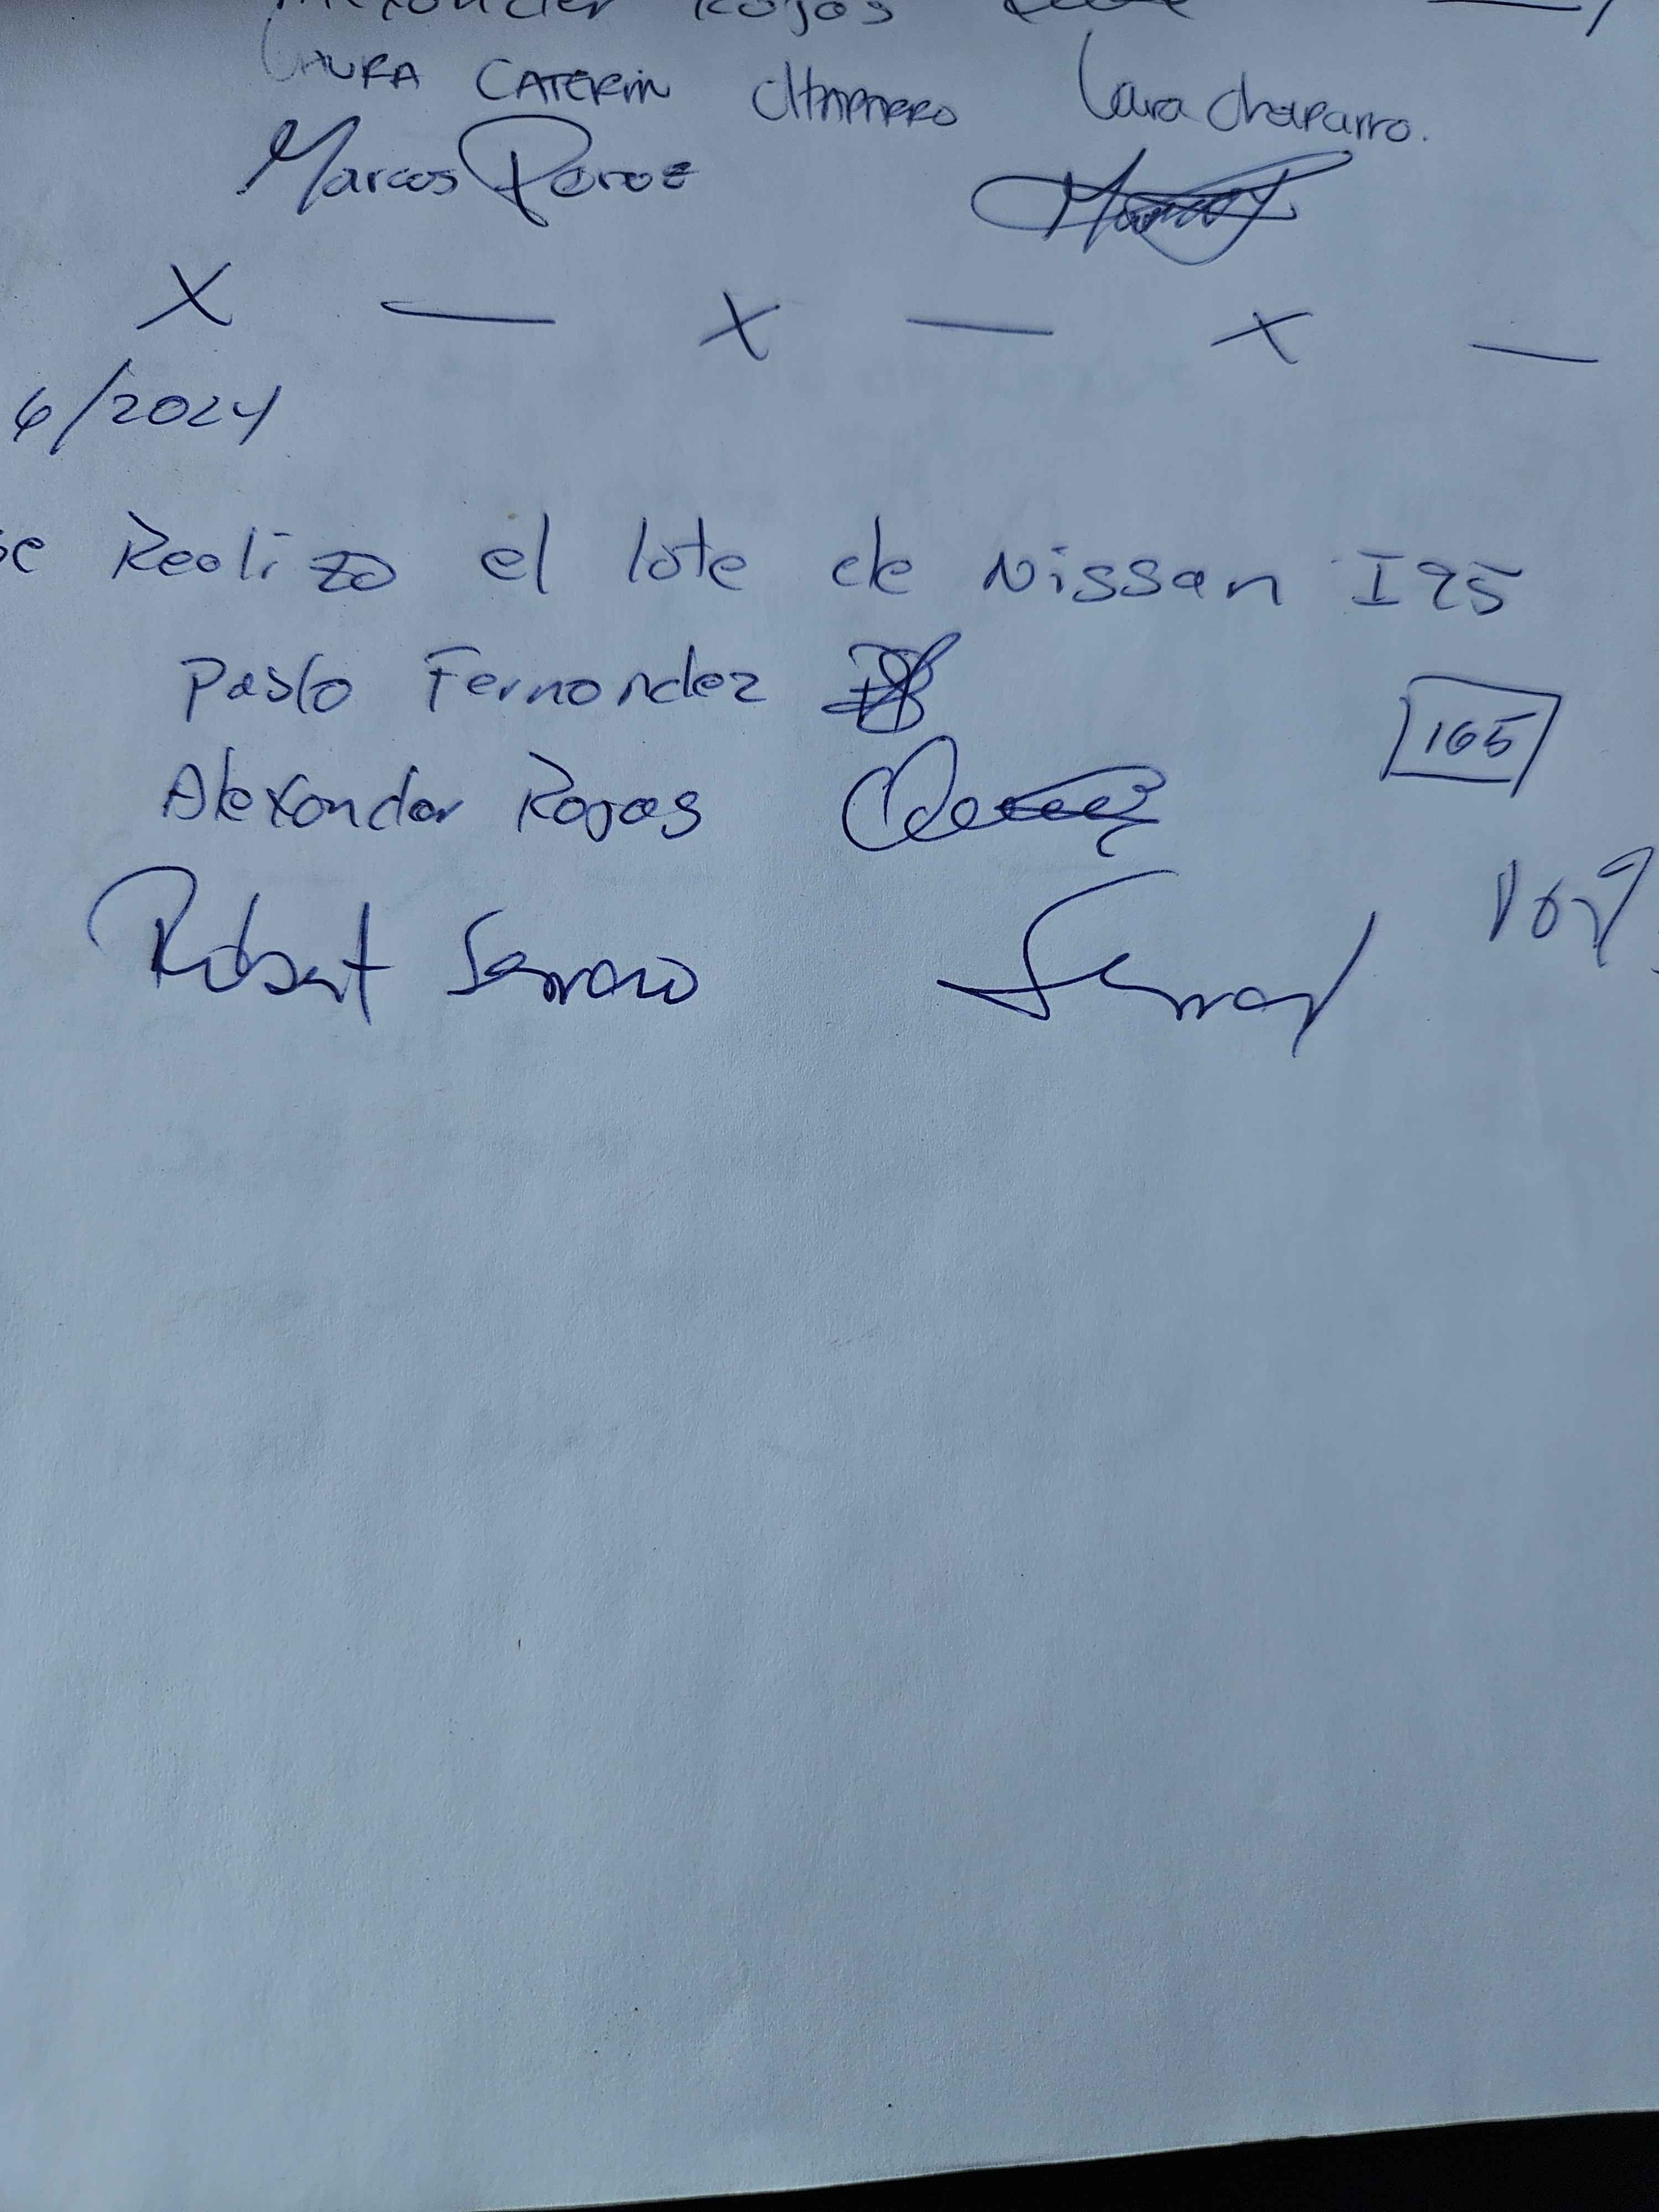 Alexander Rojas
LAURA CATERIN CHAPARRO Laura Chaparro.
Marcos Perez
X — X — X —
6/2024
se Realizo el lote de Nissan I95
Pablo Fernandez
165
Alexander Rojas
Robert Serrano